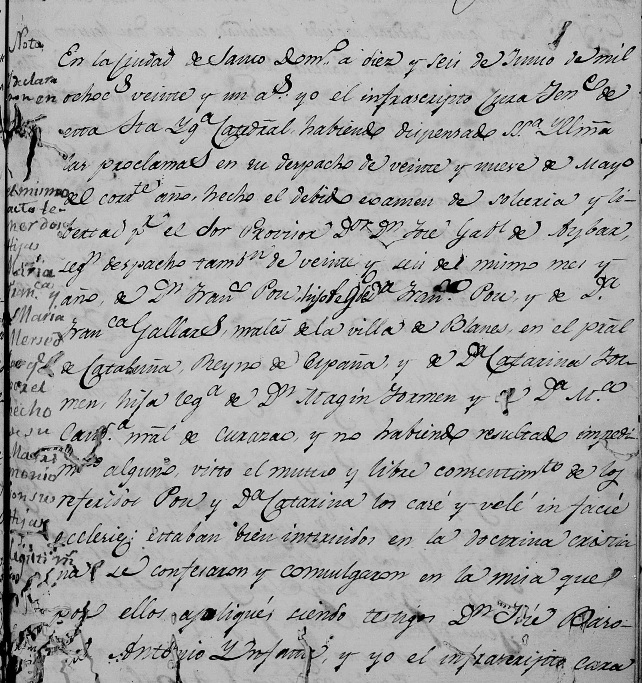 Nota
Declara
ron en
el mismo
acto te-
ner dos
Hijas
Maria
y Maria
Merced
por el
hecho
de su
Matri
monio
son sus
Hijas
legitim
En la ciudad de Santo Dom.º à diez y seis de Junio de mil
ochoc.s veinte y un a.s yo el infrascripto Cura Ten.e de
esta Sta Yg.a Catedral, habiendo dispensado S.Sª Yllma
las proclamas en su despacho de veinte y nueve de Mayo
del corr.te año, hecho el debido examen de solteria y li-
bertad p.r el Sor Provisor D.or D.n José Gab.l de Aybar,
seg.n despacho tamb.n de veinte y seis del mismo mes y
año, de D.n Fran.co Pou hijo leg.º de Fran.co Pou, y de D.a
Fran.ca Gallart, nat.les de la villa de Blanes, en el p.ral
de Cataluña, Reyno de España, y de D.a Catarina Tor-
men, hija leg.a de D.n Magin Tormen y de D.a M.a
nat.l de Curazao, y no habiendo resultado impedi
m.to alguno, visto el mutuo y libre consentim.to de los
referidos Pou y D.a Catarina los casé y velé in facie
ecclesie; estaban bien instruidos en la doctrina cristia
na y se confesaron y comulgaron en la misa que
por ellos apliqué; siendo testigos D.n José
Antonio Ynfante, y yo el infrascripto cura